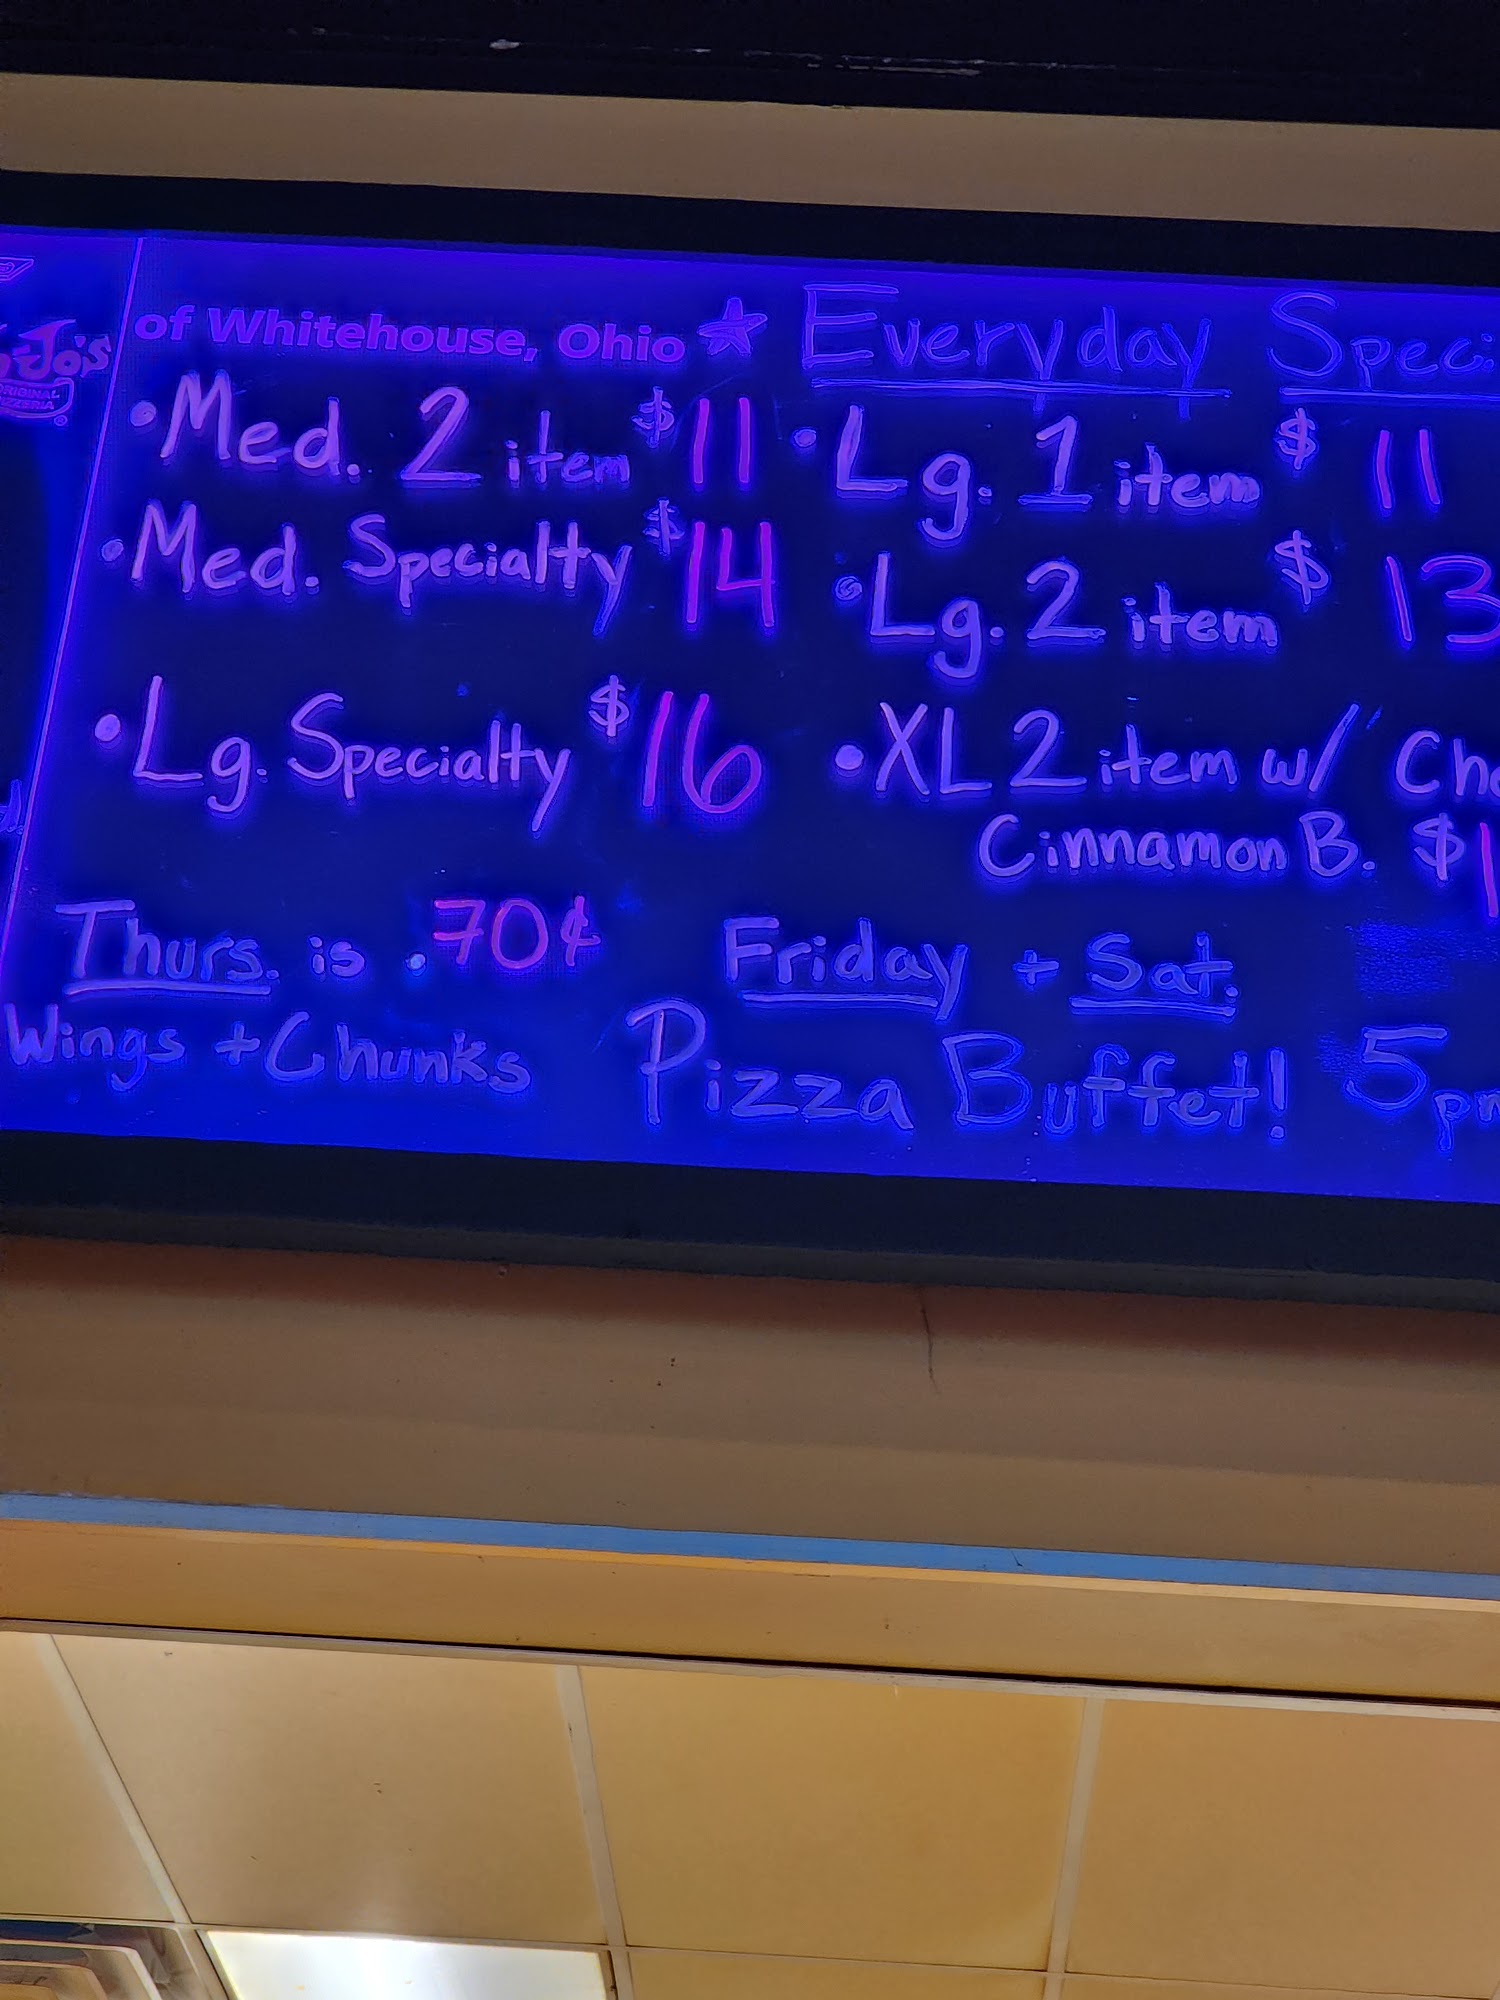 Jo's
ORIGINAL
PIZZERIA
of Whitehouse, Ohio
Everyday
• Med. 2 item $11
• Med. Specialty $14
• Lg. Specialty $16
• Lg. 1 item $11
• Lg. 2 item $13
• XL 2 item w/
Cinnamon B.
Thurs. is .70¢
Wings + Chunks
Friday + Sat.
Pizza Buffet! 5